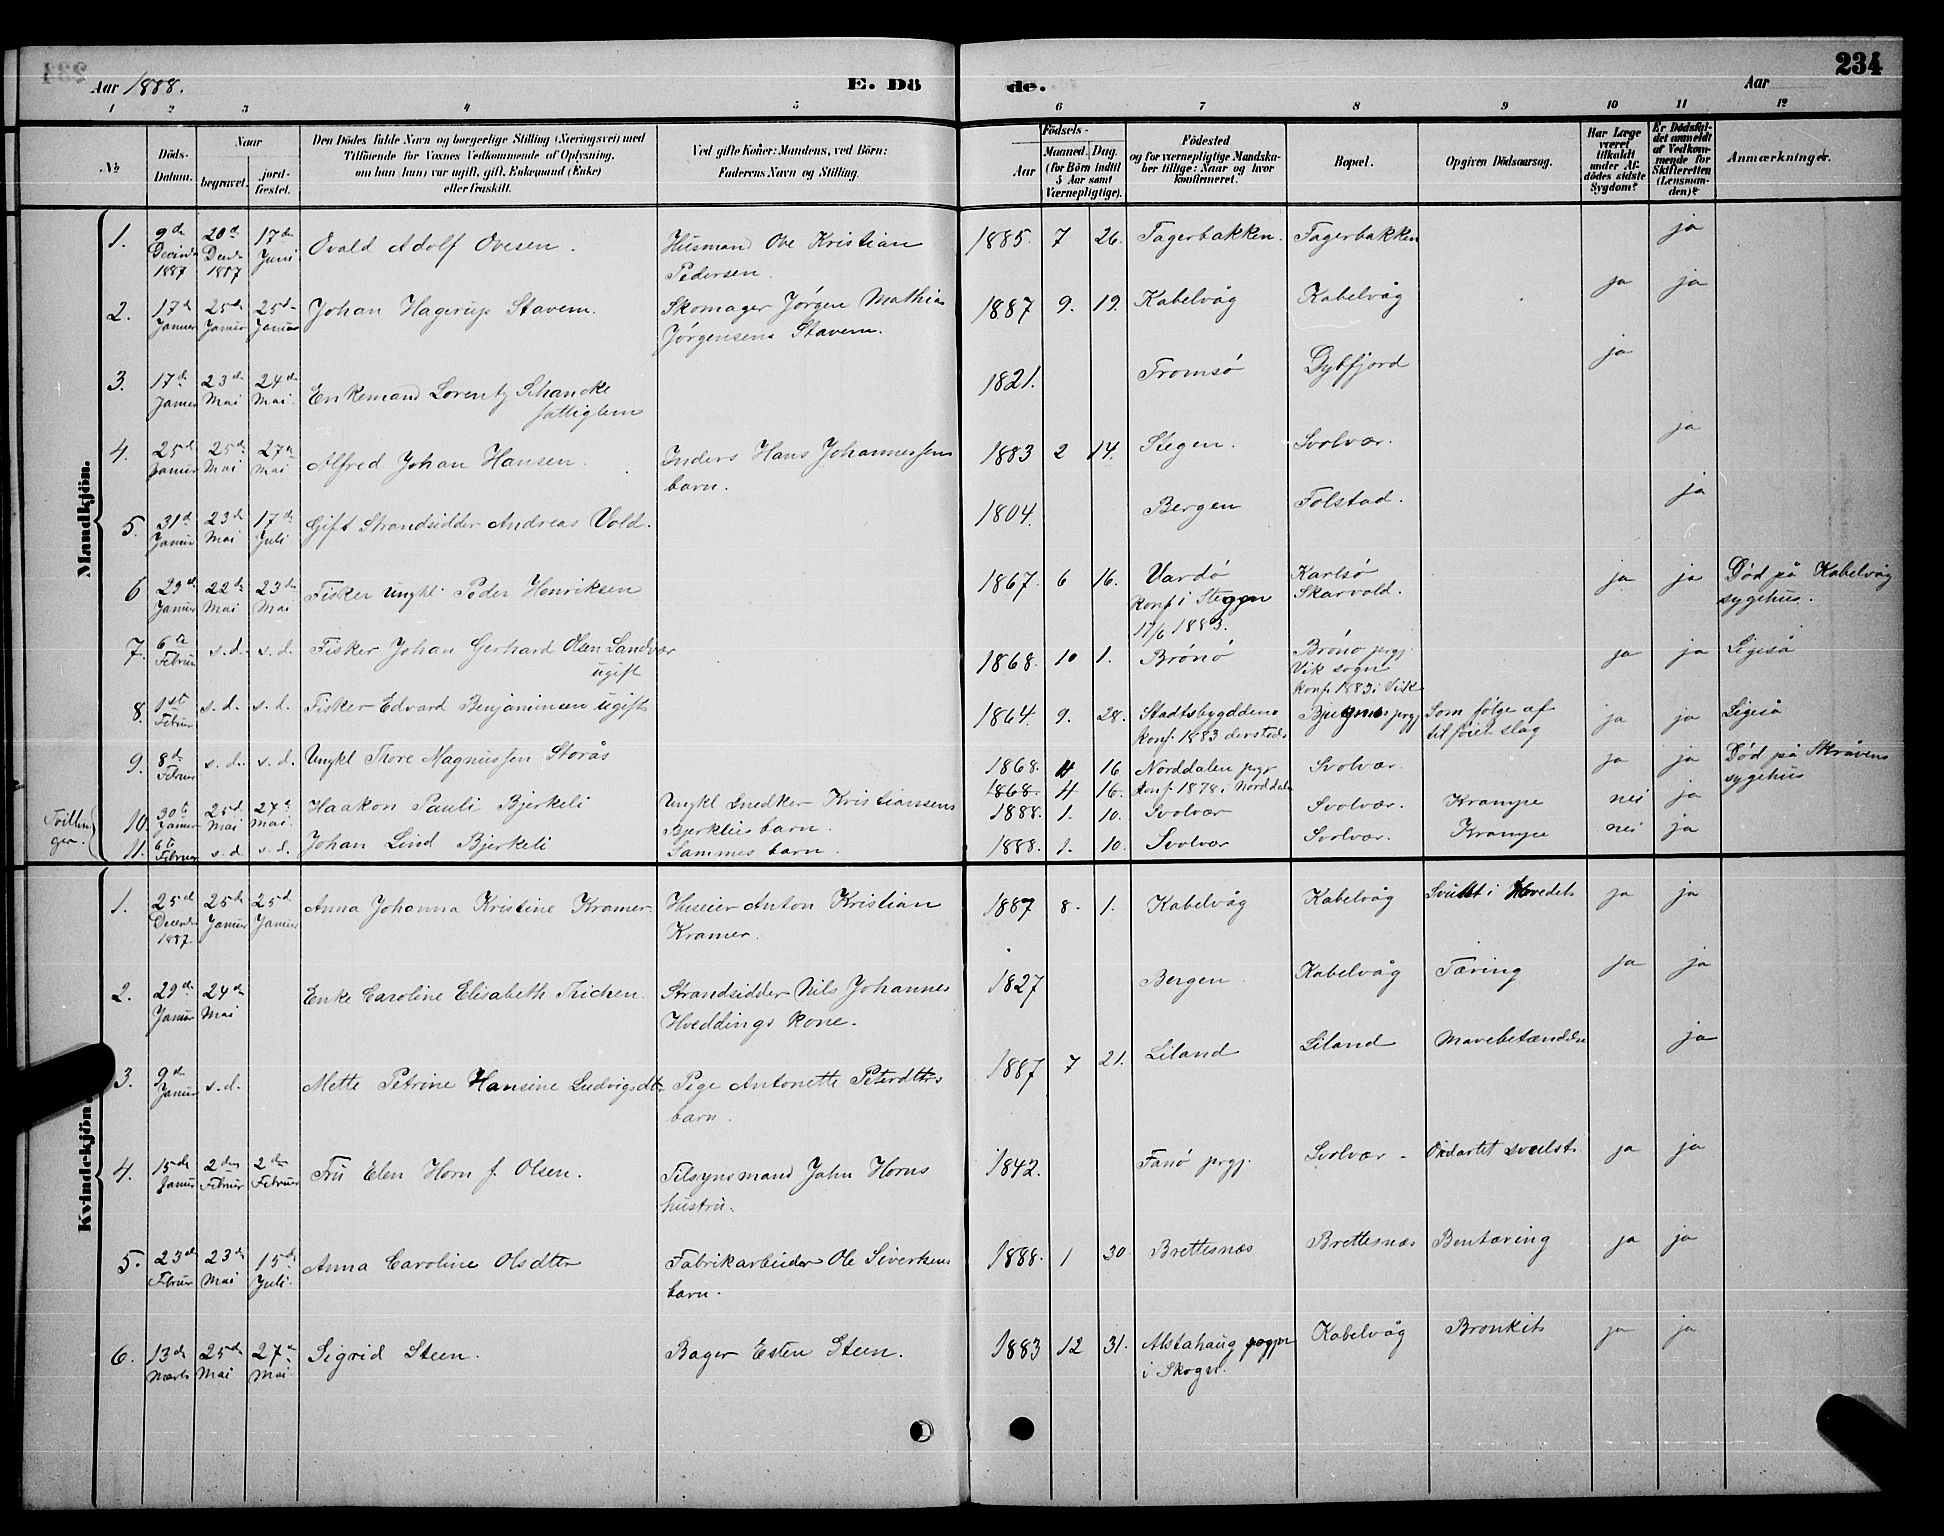 Aar 1888. E. Dö
1 2 3 4 5
№ Döds-Datum. Naar begravet. jord-fæstet. Den Dödes fulde Navn og borgerlige Stilling (Næringsvei) med Tilföiende for Voxnes Vedkommende af Oplysning, om han (hun) var ugift, gift, Enkemand (Enke) eller fraskilt. Ved gifte Koner: Mandens, ved Börn: Faderens Navn og Stilling.
Mandkjön.
1. 9de Decmbr 1887 20de Decbr 1887 17de Juni Ovald Adolf Ovesen. Husmand Ove Kristian
Pedersen.
2. 17de Januar 25de Januar 25de Januar Johan Hagerup Stavem. Skomager Jørgen Mathias
Jørgensens Stavem.
3. 17de Januar 23de Mai 24de Mai Enkemand Lorentz Schancke
fattiglem
4. 25de Januar 25de Mai 27de Mai Alfred Johan Hansen. Inders Hans Johannessens
barn.
5. 31de Januar 23de Mai 17de Juli Gift Strandsidder Andreas Vold.
6 29de Januar 22de Mai 23de Mai Fisker ungkl. Peder Henriksen
7. 6te Februar s.d. s.d. Fisker Johan Gerhard Olsen Sandvær
ugift
8. 1ste Februar s.d. s.d. Fisker Edvard Benjaminsen ugift
9. 8de Februar s.d. s.d. Ungkl Thore Magnussen Storås
Tvillinger. 10. 30te Januar 25de Mai 27de Mai. Haakon Pauli Bjerkeli Ungkl Snedker Kristiansens
Bjerkelis barn.
11. 6te Februar s.d s.d. Johan Lind Bjerkeli Sammes barn.
Kvindekjön.
1. 25de Decembr 1887. 25de Januar 25de Januar Anna Johanna Kristine Kramer Huseier Anton Kristian
Kramer.
2. 29de Januar 24de Mai Enke Caroline Elisabeth Strandsidder Nils Johannes
Hveddings kone.
3. 9de Januar s.d. Mette Petrine Hansine Ludvigsdtr Pige Antonette Petersdtrs
barn.
4. 15de Januar 2den Februar 2den Februar Fru Elen Horn f. Olsen. Tilsynsmand John Horns
hustru.
5. 23de Februar 23de Mai 15de Juli. Anna Caroline Olsdtr Fabrikarbeider Ole Siverksens
barn.
6. 13de Marts 25de Mai 27de Mai Sigrid Steen. Bager Esten Steen.
de. Aar 234
6 7 8 9 10 11 12
Födsels- Aar Maaned. Dag. (for Börn indtil 5 Aar samt Værnepligtige). Födested og for værnepligtige Mandskaber tillige: Naar og hvor konfirmeret. Bopæl. Opgiven Dödsaarsag. Har Læge været tilkaldt under Afdödes sidste Sygdom? Er Dödsfaldet anmeldt af Vedkommende for Skifteretten (Lensmanden)? Anmærkninger.
1885. 7 26. Fagerbakken. Fagerbakken ja
1887 9. 19. Kabelvåg Kabelvåg ja ja
1821. Tromsø Dybfjord ja
1883 2 14. Stegen. Svolvær. ja
1804. Bergen Folstad. ja
1867. 6 16. Vardø Karlsø ja ja Død på Kabelvåg
konf. i Stegen Skarvold. sygehus.
17/6 1883.
1868. 10 1. Brønø Brønø prgj. ja ja Ligeså
Vik sogn
konf. 1883 i Vik
1864 9. 28. Stadtsbygdden Bjugns prgj Som følge af ja ja Ligeså
konf. 1883 dersteds tilføiet slag
1868. 4 16 Norddalen prgj Svolvær. ja ja Død på Skråvens
1868. 4 16. konf. 1878 i Norddalen sygehus
1888. 1. 10. Svolvær Svolvær. Krampe nei ja
1888. 1. 10. Svolvær Svolvær. Krampe nei ja
1887 8. 1. Kabelvåg Kabelvåg Svulst i Hovedet ja ja
1827 Bergen. Kabelvåg Tæring ja ja
1887 7 21. Liland Liland Mavebetændelse ja
1842. Fanø prgj. Svolvær Ondartet svulst. ja ja
1888. 1 30. Brettesnæs Brettesnæs Bentæring ja ja
1883 12 31. Alstahaug sogn Kabelvåg Bronkit ja ja
i Skogn.